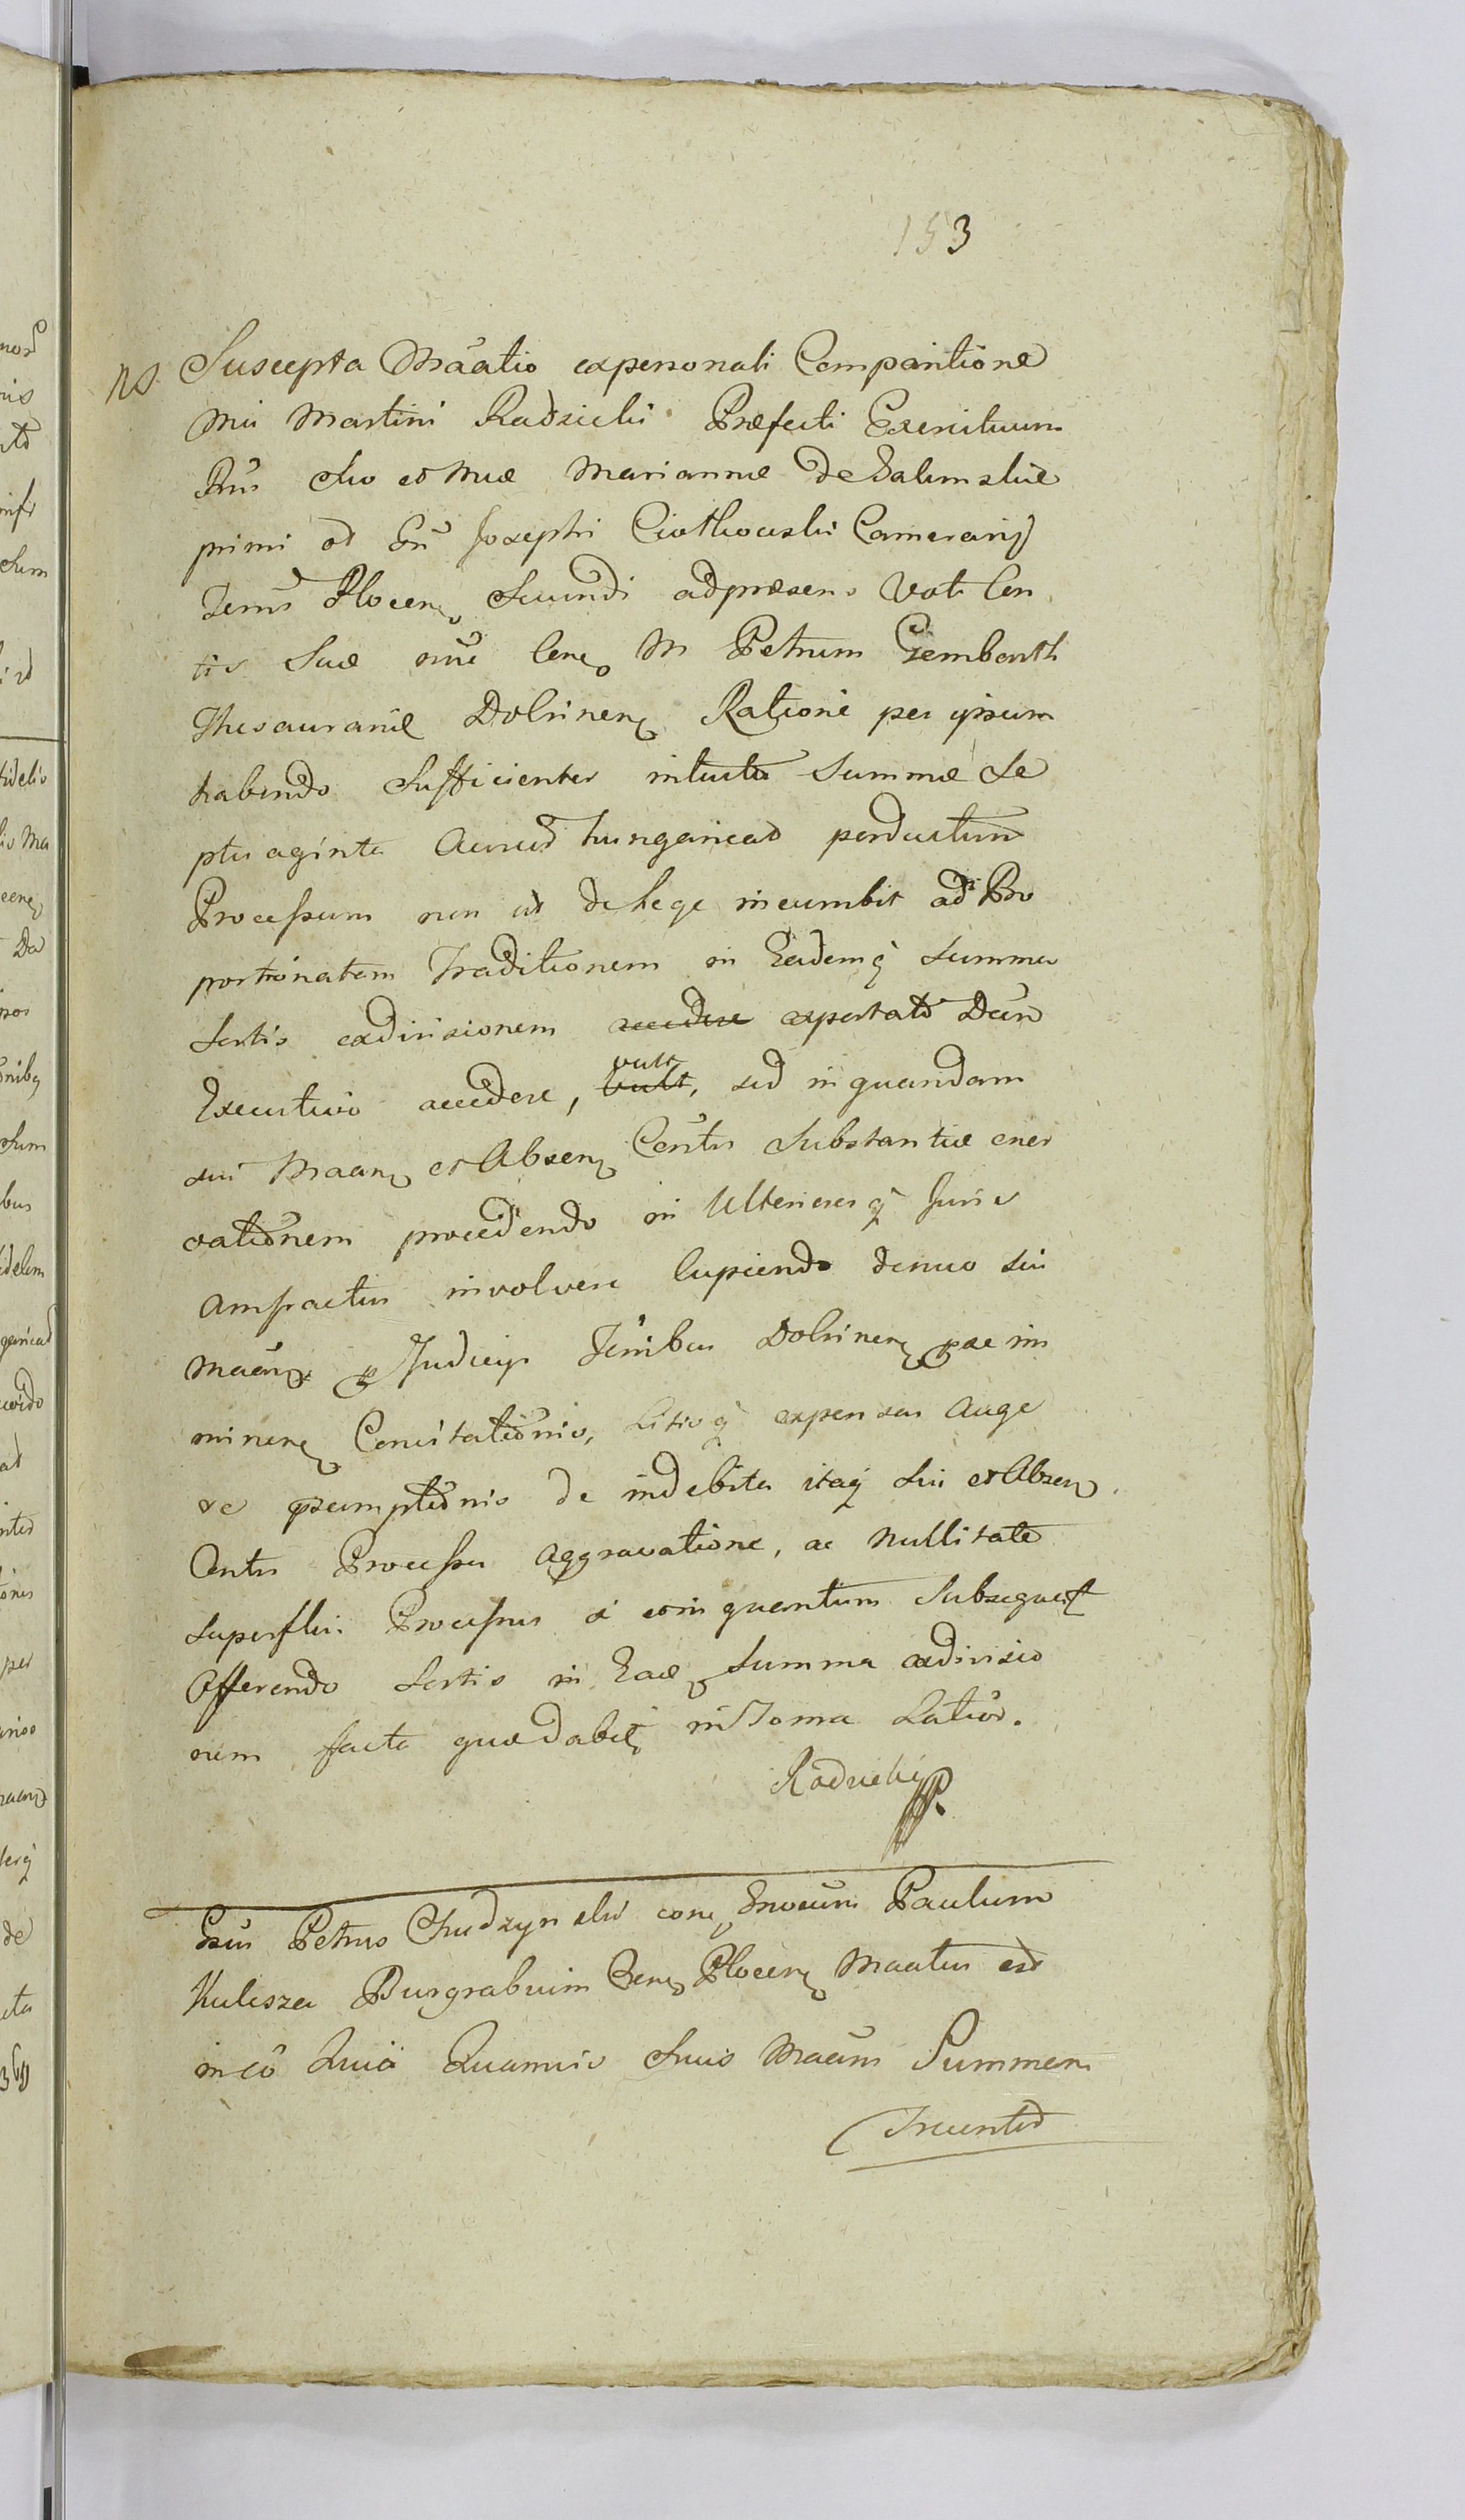 153
NS. Suscepta Mãatio expersonali Comparitione
Mci Martini Radzicki Præfecti Exercituum
Rñi Suo et Mcæ Mariannæ de Zalimskie
primi ad Gñ Josephi Ciotkowski Camerarij
Terrñs Plocen Secundi adpræsens Voti Con
tis Suæ nõie Cone M Petrum Gembarth
Thesaurariũ Dobrinen Ratione per ipsum
habendo Sufficienter intuitu Summæ Se
ptuaginta Aureos hungaricaō perductum
Processum non ut de Lege incumbit ad Pro
portionatam Traditionem in Eademq summa
Sortis exdivisionem accedere expectatō Decin
Executivo accedere, vult vult, sed in quandam
sui Maan et Absen Contis Substantiæ ener
vationem procedendo in Ulterioresq Juris
Amfractus involvere Cupiendo denuo sui
Maan p Judicijs Terribus Dobrinen præ im
minen Concitationis, Litisq expensas Auge
re præsumptionis de indebita itaq sui et Absen
Contis Processu Aggravatione, ac Nullitate
Superflui Processus si et in quantum Subsequet
Offerendo Sortis in Eade Summa exdivisio
nem facta quæ dabit in Toma Latior.
Radzicki
Gsus Petrus Chudzynski cone Gnosum Paulum
Kulesza Burgrabium Cen Plocen Maatus est
in eo Quia Quamvis Suus Maans Summam
Trecentos